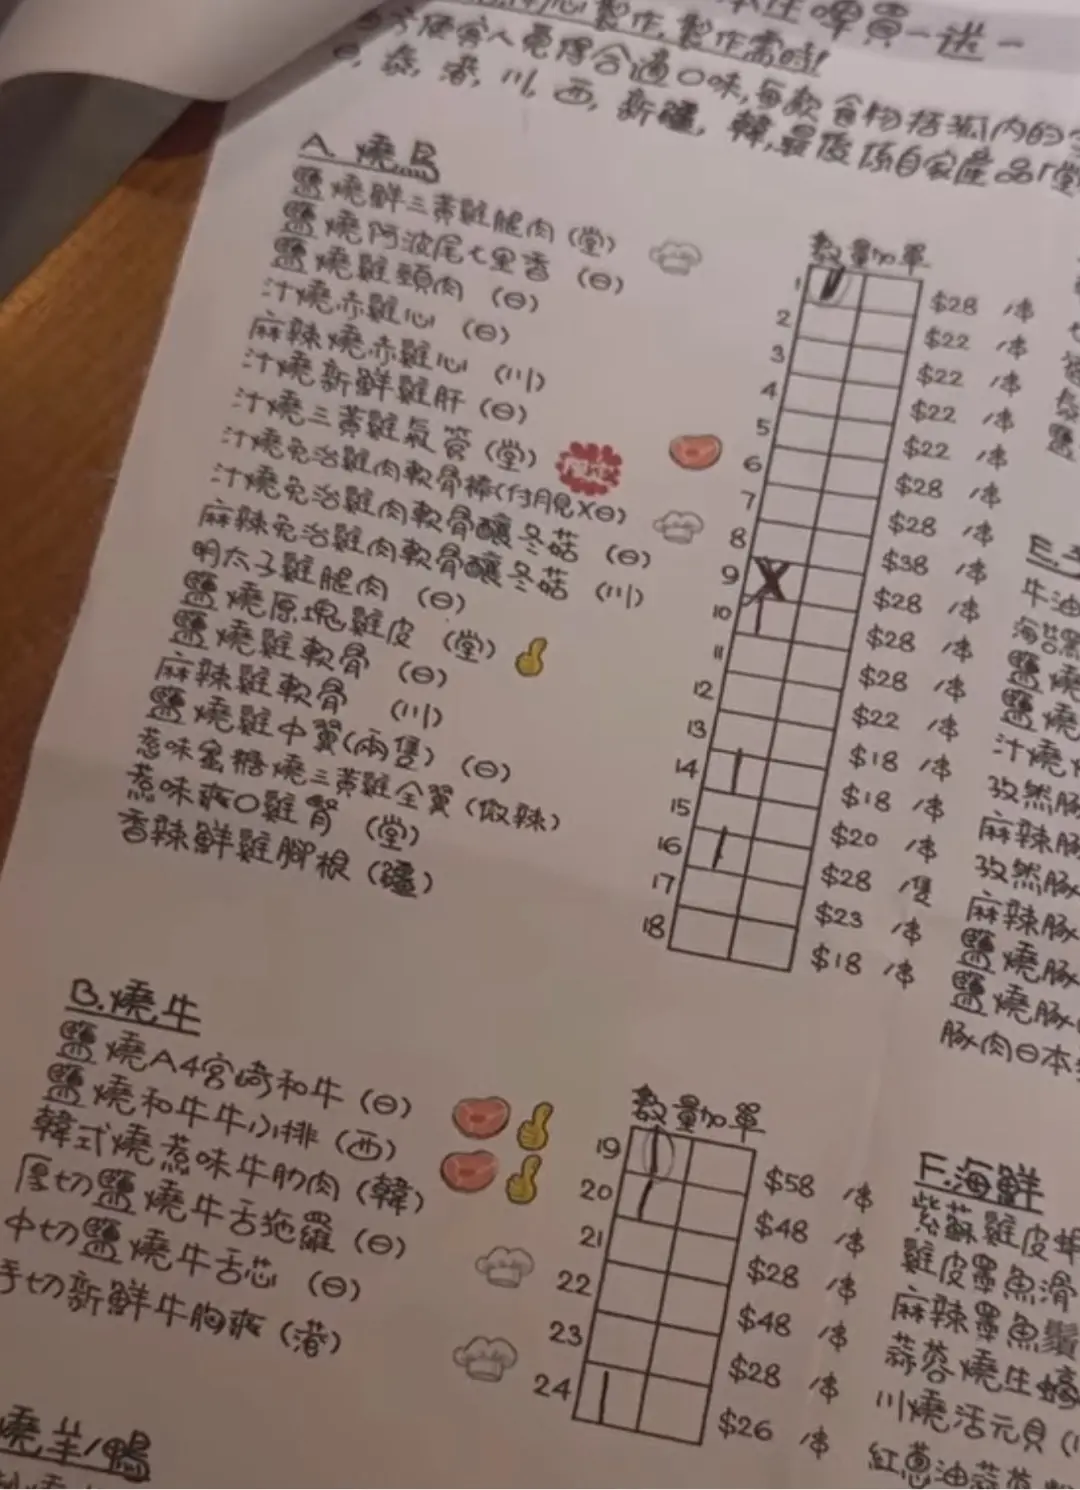 製作,製作需時!
啤買一送一
方便客人覓得合適口味,每款食物括弧內的
日,泰,港,川,西,新疆,韓,最後係自家產品「堂
A. 燒鳥
數量加單
鹽燒鮮三黃雞腿肉 (堂) 1 $28 /串
鹽燒阿波尾七里香 (日) 2 $22 /串
鹽燒雞頸肉 (日) 3 $22 /串
汁燒赤雞心 (日) 4 $22 /串
麻辣燒赤雞心 (川) 5 $22 /串
汁燒新鮮雞肝 (日) 6 $28 /串
汁燒三黃雞氣管 (堂) 7 $28 /串
汁燒免治雞肉軟骨棒(付月見X日) 8 $38 /串
汁燒免治雞肉軟骨釀冬菇 (日) 9 X $28 /串
麻辣免治雞肉軟骨釀冬菇 (川) 10 $28 /串
明太子雞腿肉 (日) 11 $28 /串
鹽燒原塊雞皮 (堂) 12 $22 /串
鹽燒雞軟骨 (日) 13 $18 /串
麻辣雞軟骨 (川) 14 $18 /串
鹽燒雞中翼(兩隻) (日) 15 $20 /串
惹味蜜糖燒三黃雞全翼 (微辣) 16 $28 /隻
惹味爽口雞腎 (堂) 17 $23 /串
香辣鮮雞腳根 (疆) 18 $18 /串
B. 燒牛
數量加單
鹽燒A4宮崎和牛 (日) 19 $58 /串
鹽燒和牛牛小排 (西) 20 $48 /串
韓式燒惹味牛肋肉 (韓) 21 $28 /串
厚切鹽燒牛舌拖羅 (日) 22 $48 /串
中切鹽燒牛舌芯 (日) 23 $28 /串
手切新鮮牛胸爽 (港) 24 $26 /串
燒羊/鴨
E.
牛油
海苔
鹽燒
鹽燒
汁燒
孜然豚
麻辣豚
孜然豚
麻辣豚
鹽燒豚
鹽燒豚
豚肉日本
F. 海鮮
紫蘇雞皮
雞皮墨魚滑
麻辣墨魚鬚
蒜蓉燒生蠔
川燒活元貝
紅蔥油蒜蓉